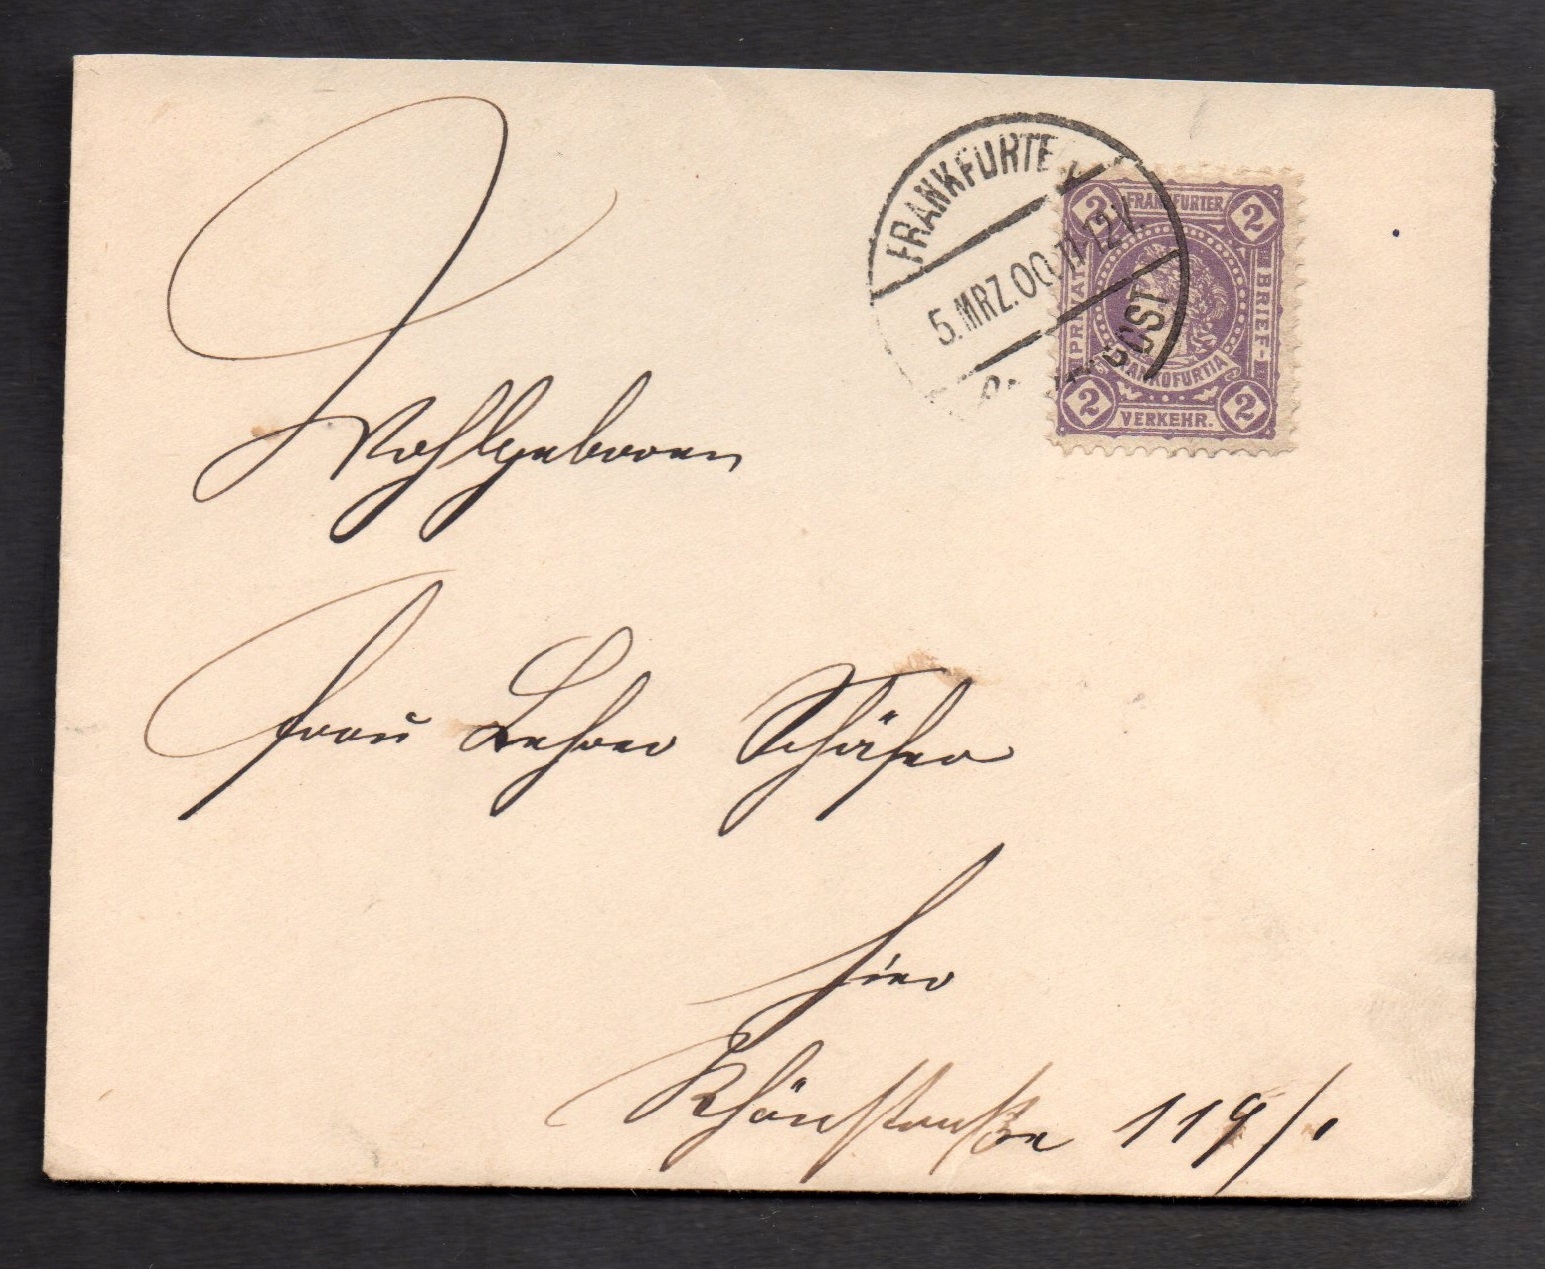 FRANKFURTER
5.MRZ.00.11-12V.
POST
2 FRANKFURTER 2
PRIVAT-
BRIEF-
FRANKOFURTIA
2 VERKEHR. 2
Wohlgeboren
Frau Lehrer Schäfer
hier
Rhönstraße 119/